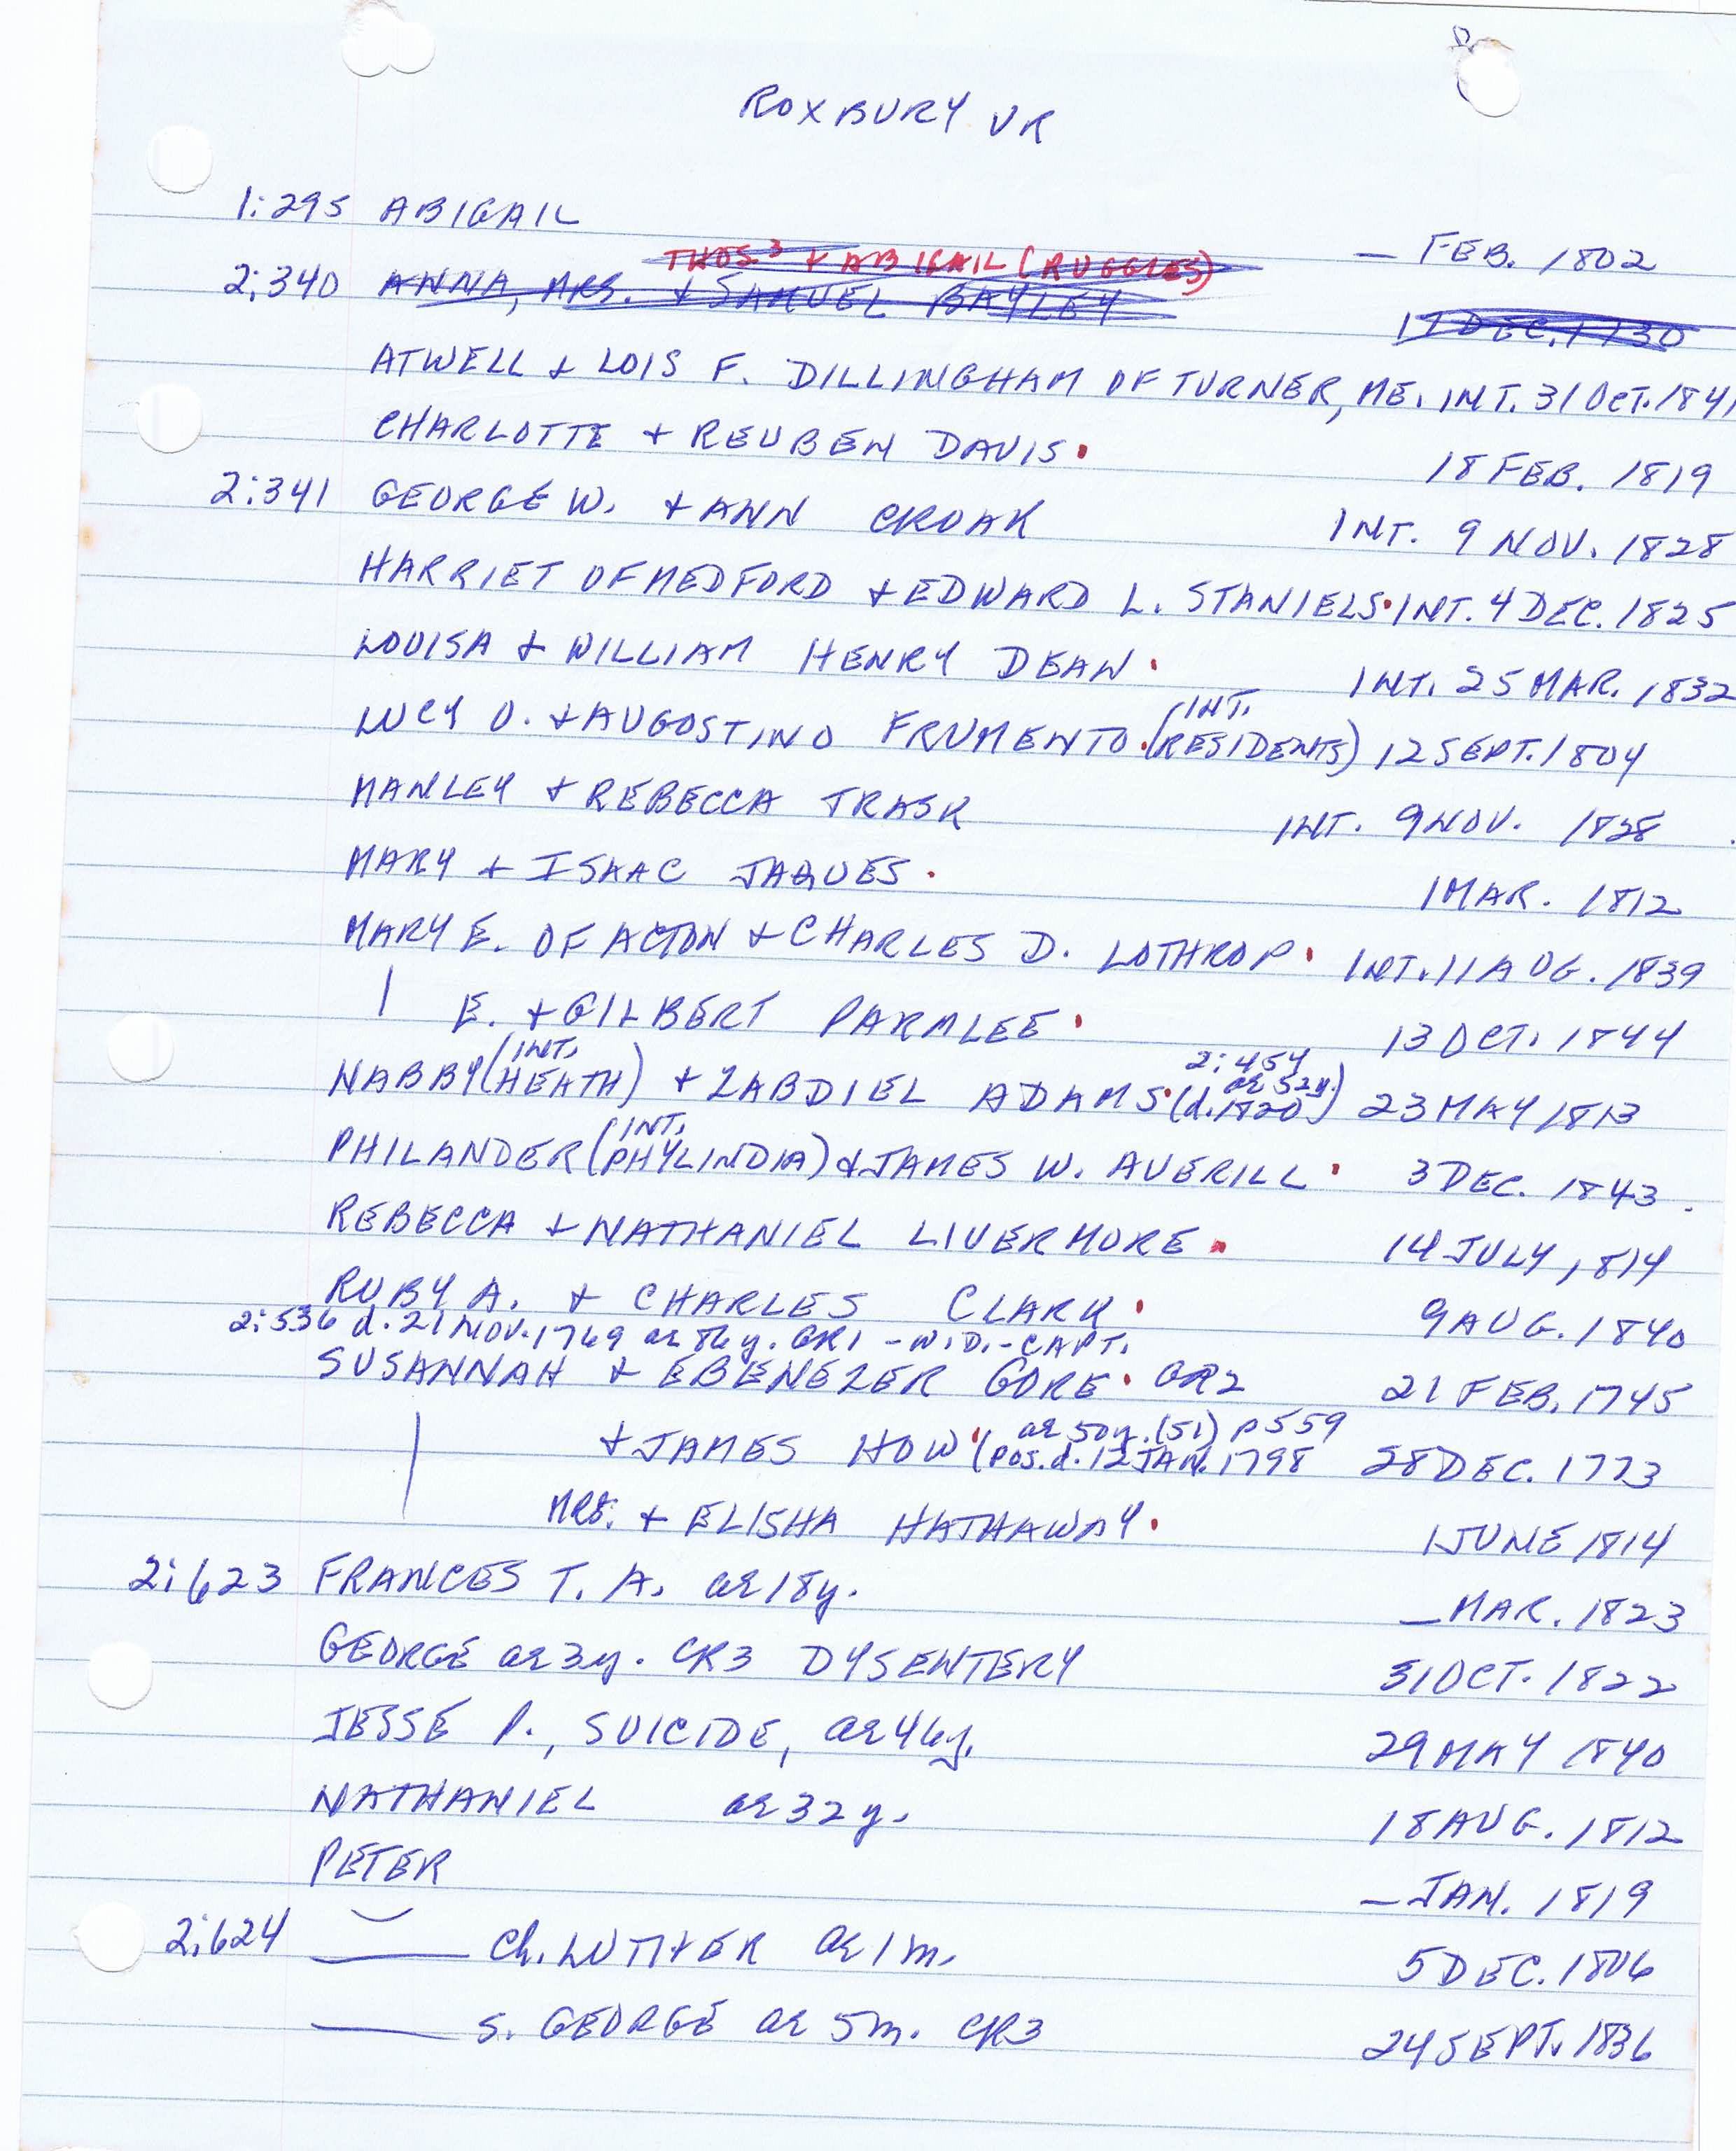 ROXBURY VR
1:295 ABIGAIL — FEB. 1802
THOS.3 + ABIGAIL (RUGGLES)
2:340 ANNA, MRS. + SAMUEL BAYLEY 17 DEC. 1730
ATWELL + LOIS F. DILLINGHAM OF TURNER, ME. INT. 31 OCT. 1841
CHARLOTTE + REUBEN DAVIS. 18 FEB. 1819
2:341 GEORGE W. + ANN CROAK INT. 9 NOV. 1828
HARRIET OF MEDFORD + EDWARD L. STANIELS. INT. 4 DEC. 1825
LOUISA + WILLIAM HENRY DEAN. INT. 25 MAR. 1832
(INT.
LUCY O. + AUGOSTINO FRUMENTO. RESIDENTS) 12 SEPT. 1804
MANLEY + REBECCA TRASK INT. 9 NOV. 1828
MARY + ISAAC JAQUES. 1 MAR. 1812
MARY E. OF ACTON + CHARLES D. LOTHROP. INT. 11 AUG. 1839
| E. + GILBERT PARMLEE. 13 OCT. 1844
(INT. 2:454 ae 52y.
NABBY HEATH) + ZABDIEL ADAMS. (d. 1820) 23 MAY 1813
(INT.
PHILANDER PHYLINDIA) + JAMES W. AVERILL. 3 DEC. 1843.
REBECCA + NATHANIEL LIVERMORE. 14 JULY 1814
RUBY A. + CHARLES CLARK. 9 AUG. 1840
2:536 d. 21 NOV. 1769 ae 86y. GR1 - WID. - CAPT.
SUSANNAH + EBENEZER GORE. GR2 21 FEB. 1745
ae 50y. (51) p559
+ JAMES HOW. (pos. d. 12 JAN. 1798 28 DEC. 1773
MRS. + ELISHA HATHAWAY. 1 JUNE 1814
2:623 FRANCES T. A. ae 18y. — MAR. 1823
GEORGE ae 3y. CR3 DYSENTERY 31 OCT. 1822
JESSE P., SUICIDE, ae 46y. 29 MAY 1840
NATHANIEL ae 32y. 18 AUG. 1812
PETER — JAN. 1819
2:624 —— Ch. LUTHER ae 1m. 5 DEC. 1806
—— S. GEORGE ae 5m. CR3 24 SEPT. 1836